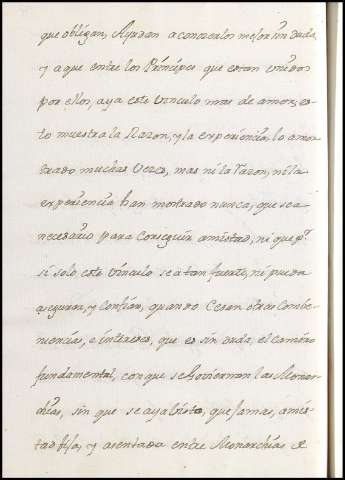 que obligan, Ayudan a conocerlos mejor sin duda,
y a que entre los Príncipes que estan Unidos
por ellos, aya este vinculo mas de amor, es-
to muestra la Razon, y la experiencia lo amos-
trado muchas Vezes, mas ni la razon, ni la
experiencia han mostrado nunca, que sea
necesario para Conseguir amistad, ni que pr.
si solo este vinculo sea tan fuerte, ni pueda
asegurar, y Confiar, quando Cesan otras Combe-
niencias, e intereses, que es sin duda, el camino
fundamental, con que se Goviernan las Monar-
chias, sin que se aya visto, que Jamas, amis-
tad fija, y asentada entre Monarchias de